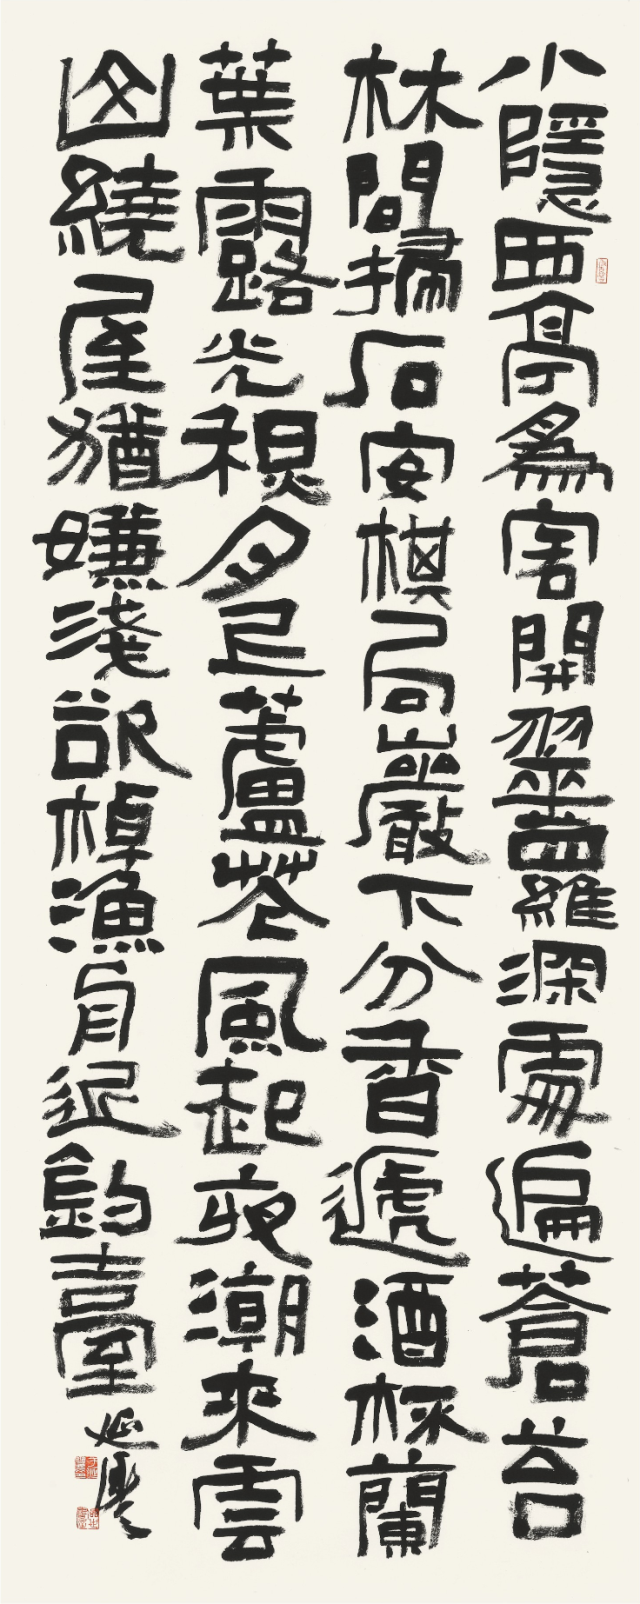 小隱西亭為客開翠蘿深處遍蒼苔
林間掃石安棋局巖下分香遞酒杯蘭
葉露光秋月上蘆花風起夜潮來雲
山繞屋猶嫌淺欲棹漁舟近釣臺